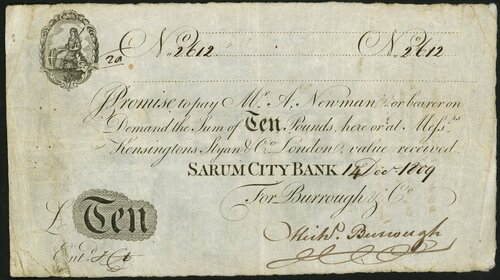 No. 2612 No. 2612
I Promise to pay Mr. A. Newman, or bearer on
Demand the Sum of Ten Pounds, here or at Messrs.
Kensingtons, Styan & Co. London, value received.
SARUM CITY BANK 14 Decr. 1809
For Burrough & Co.
£ Ten
Michl. Burrough
Entd.